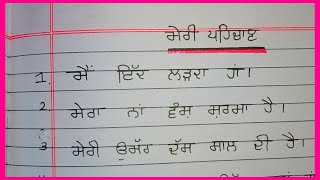 ਮੇਰੀ ਪਹਿਚਾਣ
1. ਮੈਂ ਇੱਕ ਲੜਕਾ ਹਾਂ।
2 ਮੇਰਾ ਨਾਂ ਵੰਸ਼ ਸ਼ਰਮਾ ਹੈ।
3 ਮੇਰੀ ਉਮਰ ਦੱਸ ਸਾਲ ਦੀ ਹੈ।